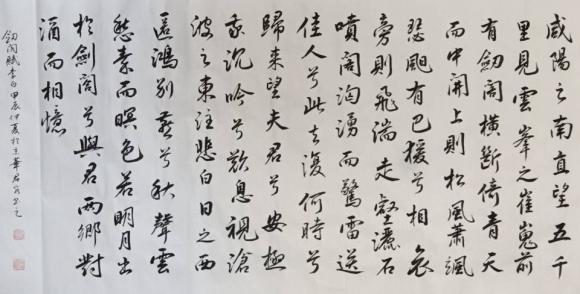 咸陽之南直望五千
里見雲峯之崔嵬前
有劍閣橫斷倚青天
而中開上則松風蕭颯
瑟颶有巴猨兮相哀
旁則飛湍走壑灑石
噴閣洶湧而驚雷送
佳人兮此去復何時兮
歸來望夫君兮安極
我沉吟兮歎息視滄
波之東注悲白日之西
匿鴻別燕兮秋聲雲
愁秦而暝色若明月出
於劍閣兮與君兩鄉對
酒而相憶
劍閣賦李白甲辰仲夏於京華